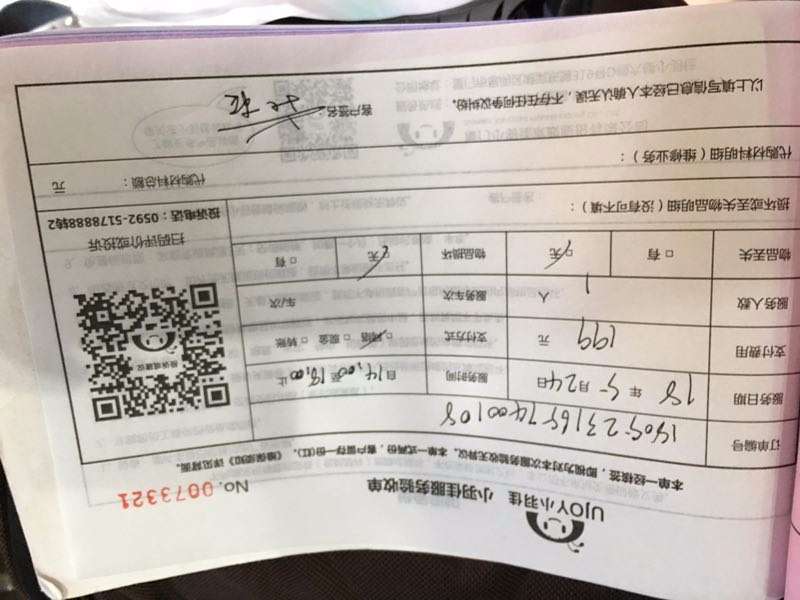 UJOY小羽佳 小羽佳服务验收单
No. 0073321
本单一经核签，即视为对本次服务验收无异议。本单一式两份，客户留存一份(红)。《维保须知》详见背面。
订单编号 1805231657400108
服务日期 18 年 5 月 24 日 服务时间 自 14:00 至 18:00 止
支付费用 199 元 支付方式 □ 网络 □ 现金 □ 转账
服务人数 1 人 服务车次 车/次
物品丢失 □ 有 □ 无 物品损坏 □ 无 □ 有
扫码评价或投诉
投诉电话：0592-5178888转2
损坏或丢失物品明细（没有可不填）：
代购材料明细（维修业务）：
代购材料总额： 元
以上填写信息已经本人确认无误，不存在任何争议纠纷。
客户签名：